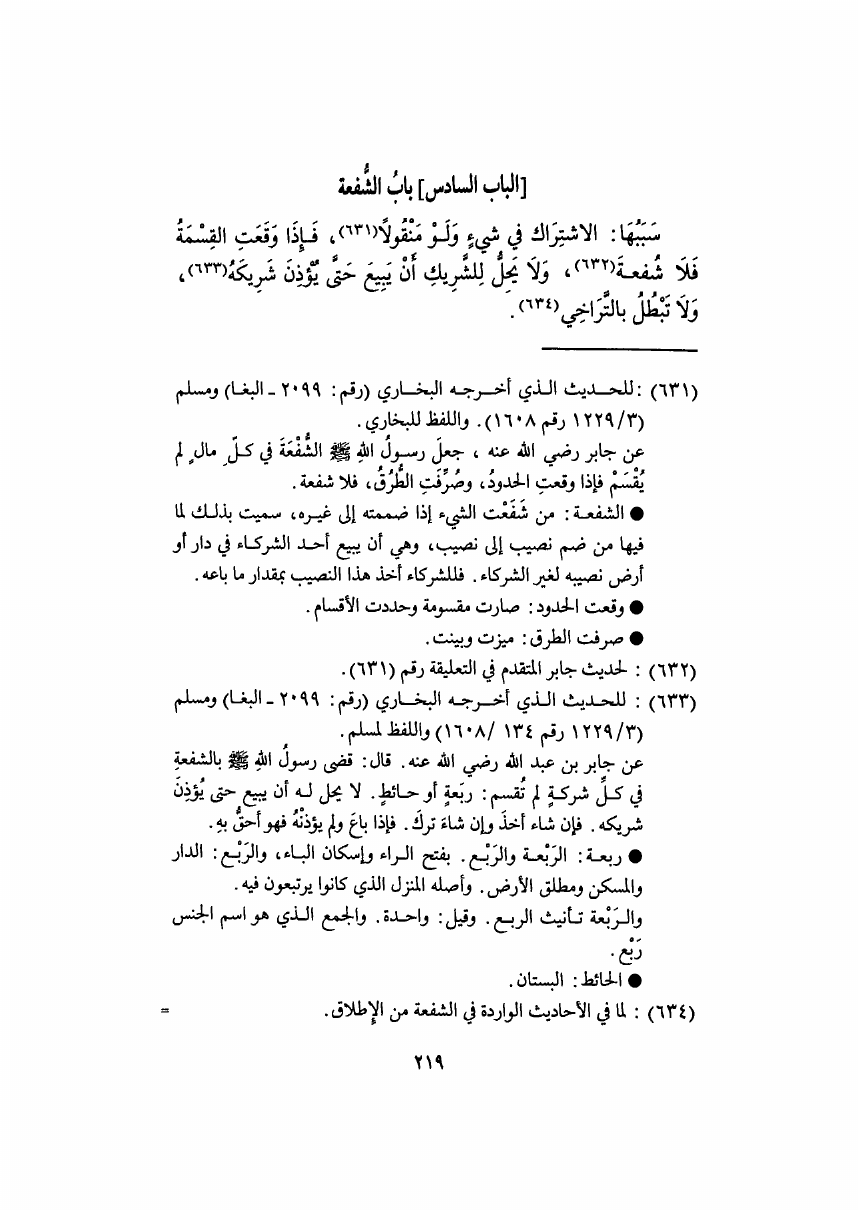 [الباب السادس] بابُ الشُّفعة
سَبَبُهَا: الاشتِرَاك في شيءٍ وَلَـوْ مَنْقُولاً(٦٣١)، فَـإِذَا وَقَعَتِ القِسْمَةُ
فَلَا شُفعـةَ(٦٣٢)، وَلَا يَحِلُّ لِلشَّرِيكِ أَنْ يَبِيعَ حَتَّى يُؤْذِنَ شَرِيكَهُ(٦٣٣)،
وَلَا تَبْطُلُ بالتَّرَاخِي(٦٣٤).
(٦٣١) :للحـديث الـذي أخـرجـه البخـاري (رقم: ٢٠٩٩ ـ البغـا) ومسلم
(٣/ ١٢٢٩ رقم ١٦٠٨). واللفظ للبخاري.
عن جابر رضي الله عنه ، جعلَ رسـولُ اللهِ ﷺ الشُّفْعَةَ في كـلّ مالٍ لم
يُقْسَمْ فإذا وقعتِ الحدودُ، وصُرِّفَتِ الطُّرُقُ، فلا شفعة.
● الشفعـة: من شَفَعْت الشيء إذا ضممته إلى غيـره، سميت بذلـك لما
فيها من ضم نصيب إلى نصيب، وهي أن يبيع أحـد الشركـاء في دار أو
أرض نصيبه لغير الشركاء. فللشركاء أخذ هذا النصيب بمقدار ما باعه.
● وقعت الحدود: صارت مقسومة وحددت الأقسام.
● صرفت الطرق: ميزت وبينت.
(٦٣٢) : لحديث جابر المتقدم في التعليقة رقم (٦٣١).
(٦٣٣) : للحـديث الـذي أخـرجـه البخـاري (رقم: ٢٠٩٩ ـ البغـا) ومسلم
(٣/ ١٢٢٩ رقم ١٣٤ /١٦٠٨) واللفظ لمسلم.
عن جابر بن عبد الله رضي الله عنه. قال: قضى رسولُ اللهِ ﷺ بالشفعةِ
في كـلِّ شركـةٍ لم تُقسم: ربَعةٍ أو حـائطٍ. لا يحل لـه أن يبيع حتى يُؤذِنَ
شريكه. فإن شاء أخذَ وإن شاءَ تركَ. فإذا باعَ ولم يؤذنْهُ فهو أحقُّ بهِ.
● ربعـة: الرَبْعـة والرَبْـع. بفتح الـراء وإسكان البـاء، والرَبْـع: الدار
والمسكن ومطلق الأرض. وأصله المنزل الذي كانوا يرتبعون فيه.
والـرَبْعة تـأنيث الربـع. وقيل: واحـدة. والجمع الـذي هو اسم الجنس
رَبْع.
● الحائط: البستان.
(٦٣٤) : لما في الأحاديث الواردة في الشفعة من الإطلاق. =
٢١٩